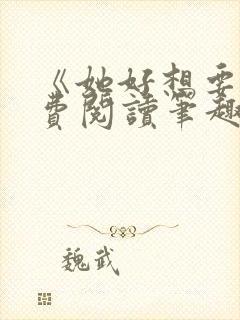 《她好想要
費閱讀筆趣
魏武